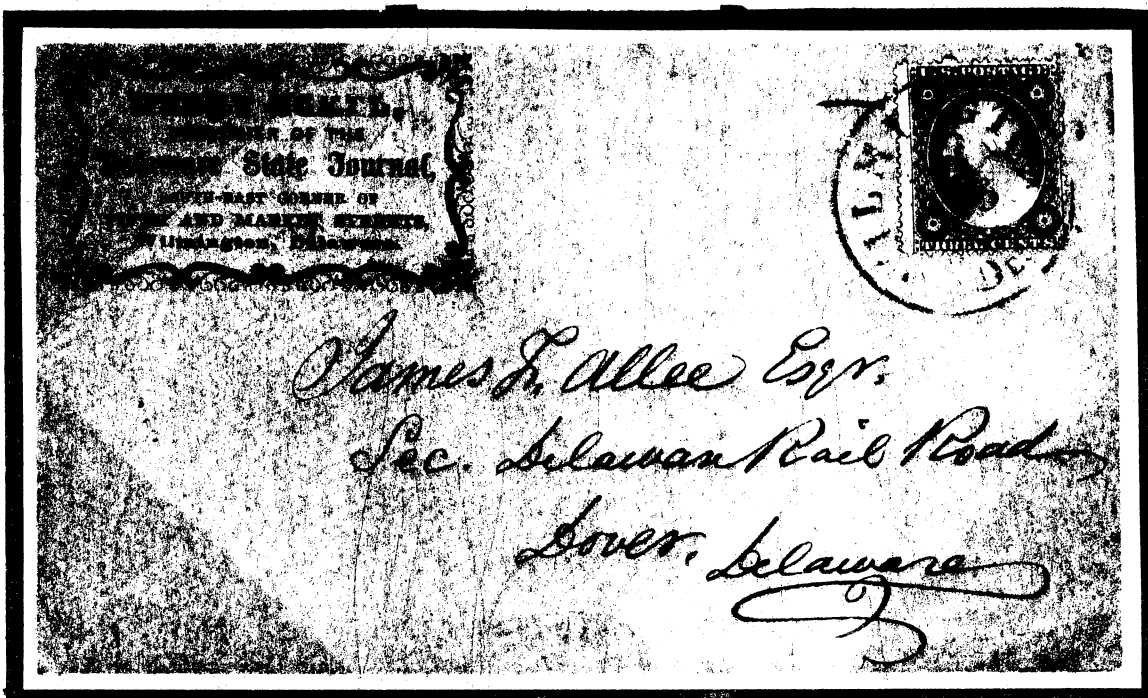 OF THE
State Journal,
SOUTH-EAST CORNER OF
AND MARKET STREETS,
Wilmington, Delaware.
U.S. POSTAGE
THREE CENTS
De.
James L. Allee Esqr.
Sec. Delaware Rail Road
Dover, Delaware